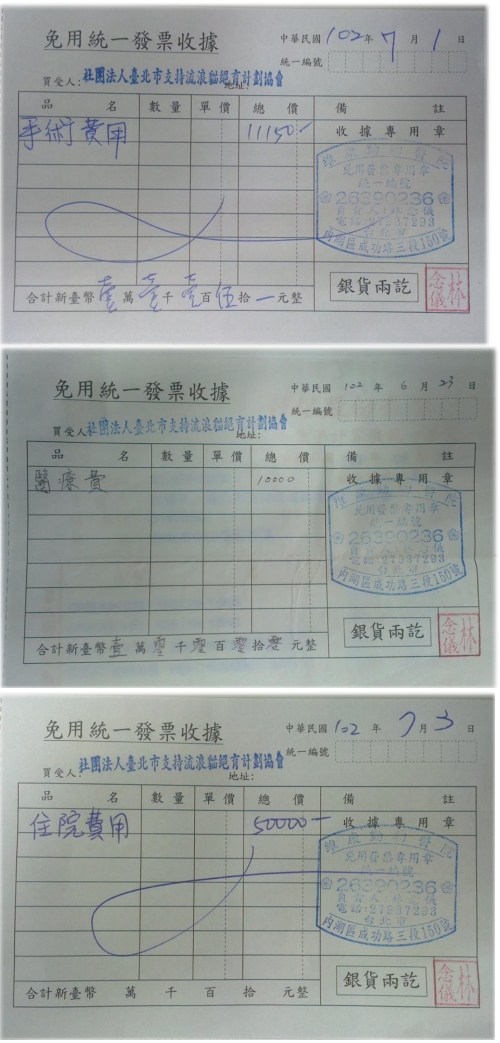 免用統一發票收據
中華民國 102 年 7 月 1 日
統一編號
買受人：社團法人臺北市支持流浪貓絕育計劃協會
地址：
品 名 數量 單價 總價 備 註
手術費用 11150- 收據專用章
免用發票專用章
統一編號
26390236
負責人:林念儀
電話:27937293
台北市
內湖區成功路三段150號
銀貨兩訖
林念儀
合計新臺幣 壹 萬 壹 千 壹 百 伍 拾 一 元整
免用統一發票收據
中華民國 102 年 6 月 23 日
統一編號
買受人：社團法人臺北市支持流浪貓絕育計劃協會
地址：
品 名 數量 單價 總價 備 註
醫療費 10000 收據專用章
免用發票專用章
統一編號
26390236
負責人:林念儀
電話:27937293
台北市
內湖區成功路三段150號
銀貨兩訖
林念儀
合計新臺幣 壹 萬 零 千 零 百 零 拾 零 元整
免用統一發票收據
中華民國 102 年 7 月 3 日
統一編號
買受人：社團法人臺北市支持流浪貓絕育計劃協會
地址：
品 名 數量 單價 總價 備 註
住院費用 50000- 收據專用章
免用發票專用章
統一編號
26390236
負責人:林念儀
電話:27937293
台北市
內湖區成功路三段150號
銀貨兩訖
林念儀
合計新臺幣 萬 千 百 拾 元整